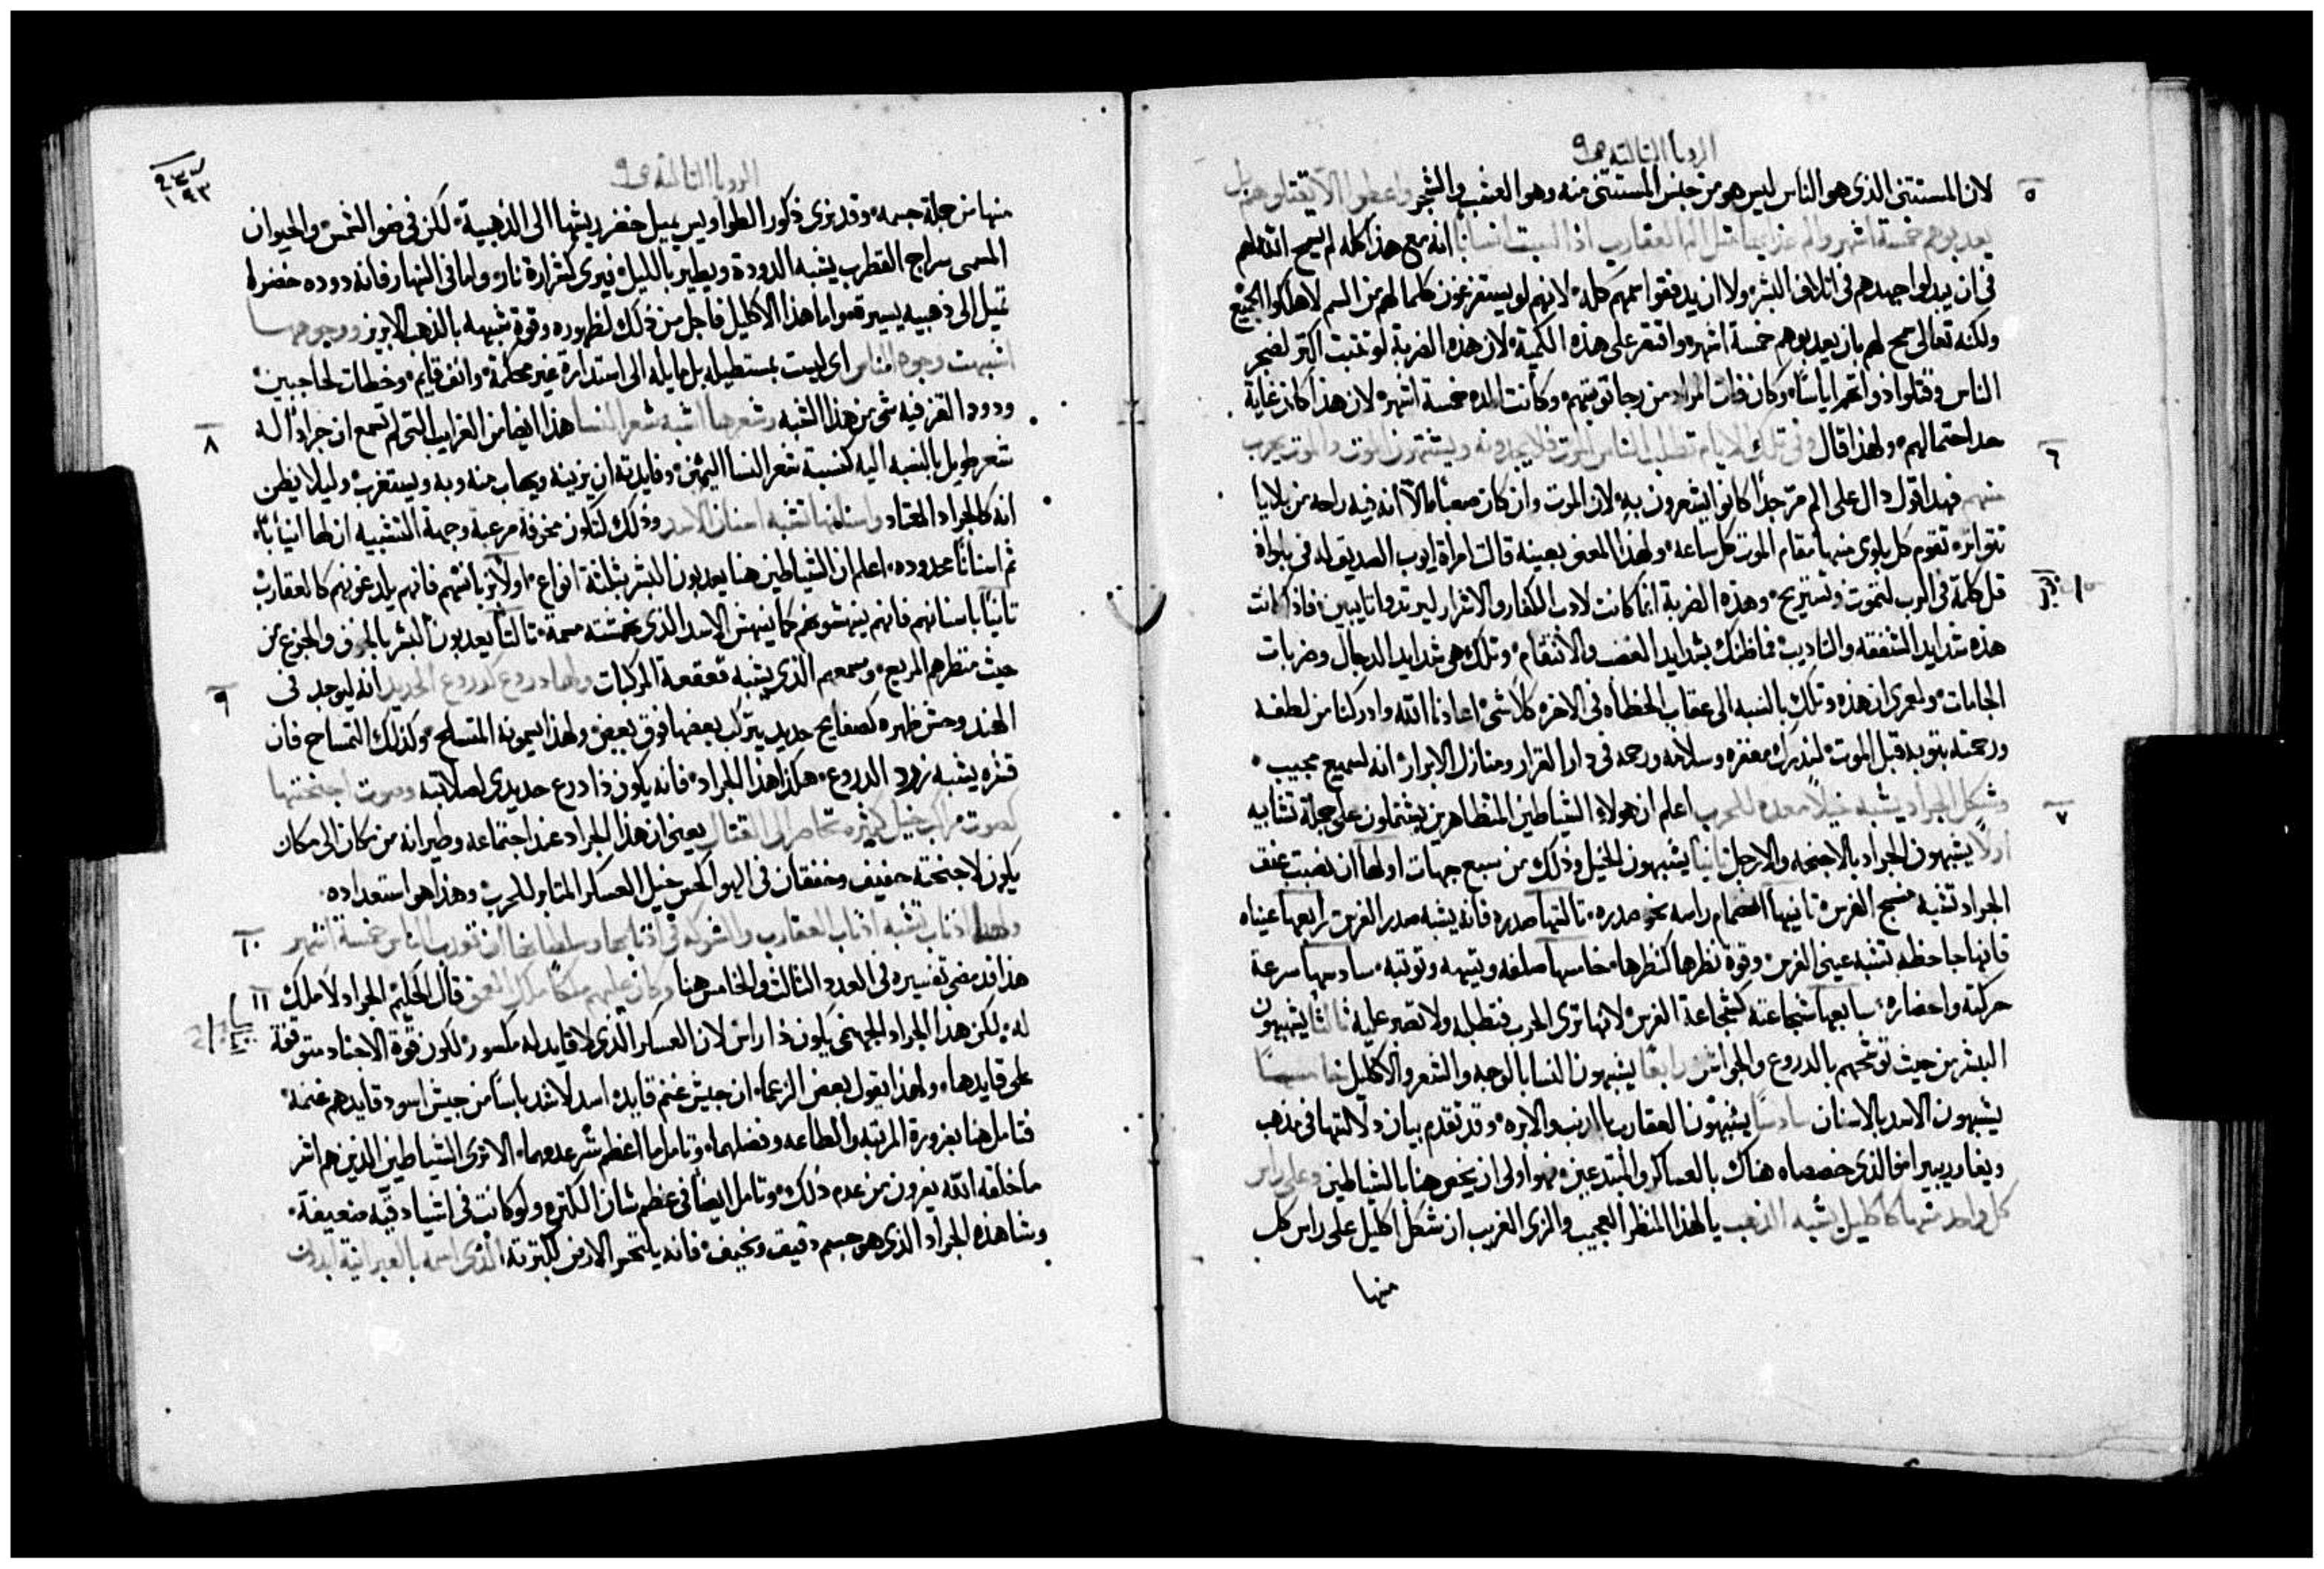 الرويا الثالثة ص ٩
٥
لان المستثنى الذى هو الناس ليس هو من جنس المستثنى منه وهو العشب والشجر واعطوا الا يقتلوهم بل
يعذبوهم خمسة اشهر والم عذابها مثل الم العقارب اذا لسعت انسانا انه مع هذا كله لم يسمح الله لهم
فى ان يبدلوا جهدهم فى اتلاف البشر ولا ان يدفقوا سمهم كله لانهم لو يستفرغون كلما لهم من السم لاهلكوا الجميع
ولكنه تعالى سمح لهم بان يعذبوهم خمسة اشهر واقتصر على هذه الكمية لان هذه الضربة لو تمت اكثر لضجر
الناس وقتلوا ذواتهم اياسا وكان المراد من رجا توبتهم وكانت المده خمسة اشهر لان هذا كان غاية
٦
حد احتمالهم ولهذا قال وفى تلك الايام تطلب الناس الموت فلا يجدونه ويشتهون الموت والموت يهرب
منهم فهذا قول دال على الم مر جدا كانوا يشعرون به لان الموت وان كان صعبا ما الا انه فيه راحه من بلايا
تتواتر تقوم كل بلوى منها مقام الموت كل ساعه ولهذا المعنى بعينه قالت امراة ايوب الصديق له فى بلواه
قل كلمة فى الرب لتموت وتستريح وهذه الضربة انما كانت لادب الكفار والاشرار ليرتدوا تايبين فاذا كانت
هذه شدايد الشفقه والتاديب فما ظنك بشدايد الغضب والانتقام وتلك هى شدايد الدجال وضربات
الجامات ولعمرى ان هذه وتلك بالنسبه الى عقاب الخطاه فى الاخره كلا شى اعاذنا الله وادركنا من لطفه
ورحمته بتوبه قبل الموت لندرك مغفره وسلامه ورحمه فى دار القرار ومنازل الابرار انه لسميع مجيب
٧
وشكل الجراد يشبه خيلا معده للحرب اعلم ان هولاء الشياطين المتظاهرين يشتملون على جملة تشابيه
اولا يشبهون الجراد بالاجنحه والارجل ثانيا يشبهون الخيل وذلك من سبع جهات اولها ان نصبت عنق
الجراد تشبه منسج الفرس ثانيها انضمام راسه نحو صدره ثالثها صدره فانه يشبه صدر الفرس رابعها عيناه
فانها جاحظه تشبه عينى الفرس وقوة نظرها كنظرها خامسها صلفه وتيهه وتوثبه سادسها سرعة
حركته واحضاره سابعها شجاعته كشجاعة الفرس لانها ترى الحرب فتطلبه ولا تصبر عليه ثالثا يشبهون
البشر من حيث توشحهم بالدروع والجواشن رابعا يشبهون النسا بالوجه والشعر والاكليل خامسا
يشبهون الاسد بالاسنان سادسا يشبهون العقارب بالذنب والابره وقد تقدم بيان دلالتها فى مذهب
ويغاريبيرا من الذى خصصاه هناك بالعساكر والمبتدعين فهو اولى ان يخص هنا بالشياطين وعلى راس
كل واحد منها كاكليل شبه الذهب يا لهذا المنظر العجيب والزى الغريب ان شكل اكليل على راس كل
منها
الرويا الثالثة ص ٩
١٩٣
منها من جملة جسمه وقد نرى ذكور الطواويس يميل خضر ريشها الى الذهبية لكن فى ضو الشمس والحيوان
المسمى سراج القطرب يشبه الدودة ويطير بالليل فيرى كشرارة نار واما فى النهار فانه دوده خضرا
تميل الى ذهبيه يسيره واما هذا الاكليل فاجل من ذلك لظهوره وقوة شبهه بالذهب الابريز ووجوهها
اشبهت وجوه الناس اى ليست بمستطيله بل مايله الى استدارة غير محكمة وانف قايم وخطات لحاجبين
٨
ودود القز فيه شى من هذا الشبه وشعرها اشبه شعر النسا هذا ايضا من الغرايب التى لم تسمع ان جرادا له
شعر طويل بالنسبه اليه كنسبة شعر النسا اليهن وفايدته ان يزينه ويهاب منه وبه ويستغرب وليلا يظن
انه كالجراد المعتاد واسنانها تشبه اسنان الاسد وذلك لتكون مخوفة مرعبة وجهة التشبيه ان لها انيابا
ثم اسنانا محدوده اعلم ان الشياطين هنا يعذبون البشر بثلثة انواع اولا بزباناتهم فانهم يلدغونهم كالعقارب
ثانيا باسنانهم فانهم ينهشونهم كما ينهش الاسد الذى نهشته سمة ثالثا يعذبون البشر بالخوف والجزع من
٩
حيث منظرهم المريع وسمعهم الذى يشبه قعقعة المركبات ولها دروع كدروع الحديد انه ليوجد فى
الهند وحش ظهره كصفايح حديد يتركب بعضها فوق بعض ولهذا يسمونه المتسلح وكذلك التمساح فان
قشره يشبه زرد الدروع هكذا هذا الجراد فانه يكون ذا درع حديدى لصلابته وصوت اجنحتها
كصوت مراكب خيل كثيره تحاضر الى القتال يعنى ان هذا الجراد عند اجتماعه وطيرانه من مكان الى مكان
يكون لاجنحته حفيف وخفقان فى الهوا كحس خيل العسكر المتاهب للحرب وهذا هو استعداده
١٠
ولها اذناب تشبه اذناب العقارب والشوكه فى اذنابها وسلطانها ان تعذب الناس خمسة اشهر
١١
هذا قد مضى تفسيره فى العدد الثالث والخامس هنا وكان عليهم ملكا ملاك العمق قال الحكيم الجراد لا ملك
له لكن هذا الجراد الجهنمى يكون ذا راس لان العسكر الذى لا قايد له مكسور لكون قوة الاجناد متوقفة
على قايدها ولهذا يقول بعض الزعما ان جيش غنم قايده اسد لاشد باسا من جيش اسود قايدهم غنمه
فتامل هنا بضرورة المرتبه والطاعه وفضلهما وتامل ما اعظم شر عدمهما الا ترى الشياطين الذين هم اشر
ما خلقه الله يفرون من عدم ذلك وتامل ايضا فى عظم شان الكثره ولو كانت فى اشياء دقيه ضعيفة
وشاهده الجراد الذى هو جسم دقيق ونحيف فانه ياكل نحو الارض لكثرته الذى اسمه بالعبرانية ابدون